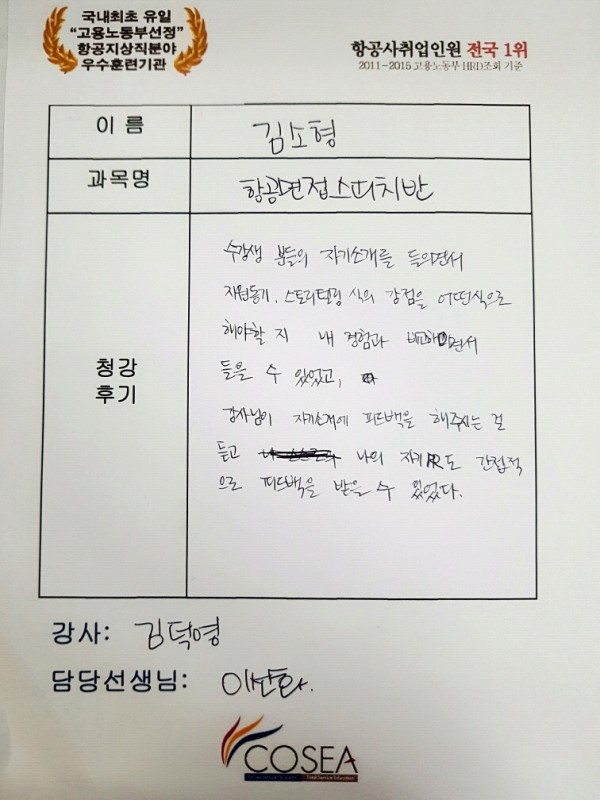 국내최초 유일
"고용노동부선정"
항공지상직분야
우수훈련기관
항공사취업인원 전국 1위
2011~2015 고용노동부 HRD조회 기준
이 름
김소형
과목명
항공면접스피치반
청강
후기
수강생 분들의 자기소개를 들으면서
지원동기, 스토리텔링 식의 강점을 어떤식으로
해야할 지 내 경험과 비교하면서
들을 수 있었고,
강사님이 자기소개에 피드백을 해주시는 걸
듣고 나의 자기PR도 간접적
으로 피드백을 받을 수 있었다.
강사: 김덕영
담당선생님: 이산화.
COSEA
Total Service Education